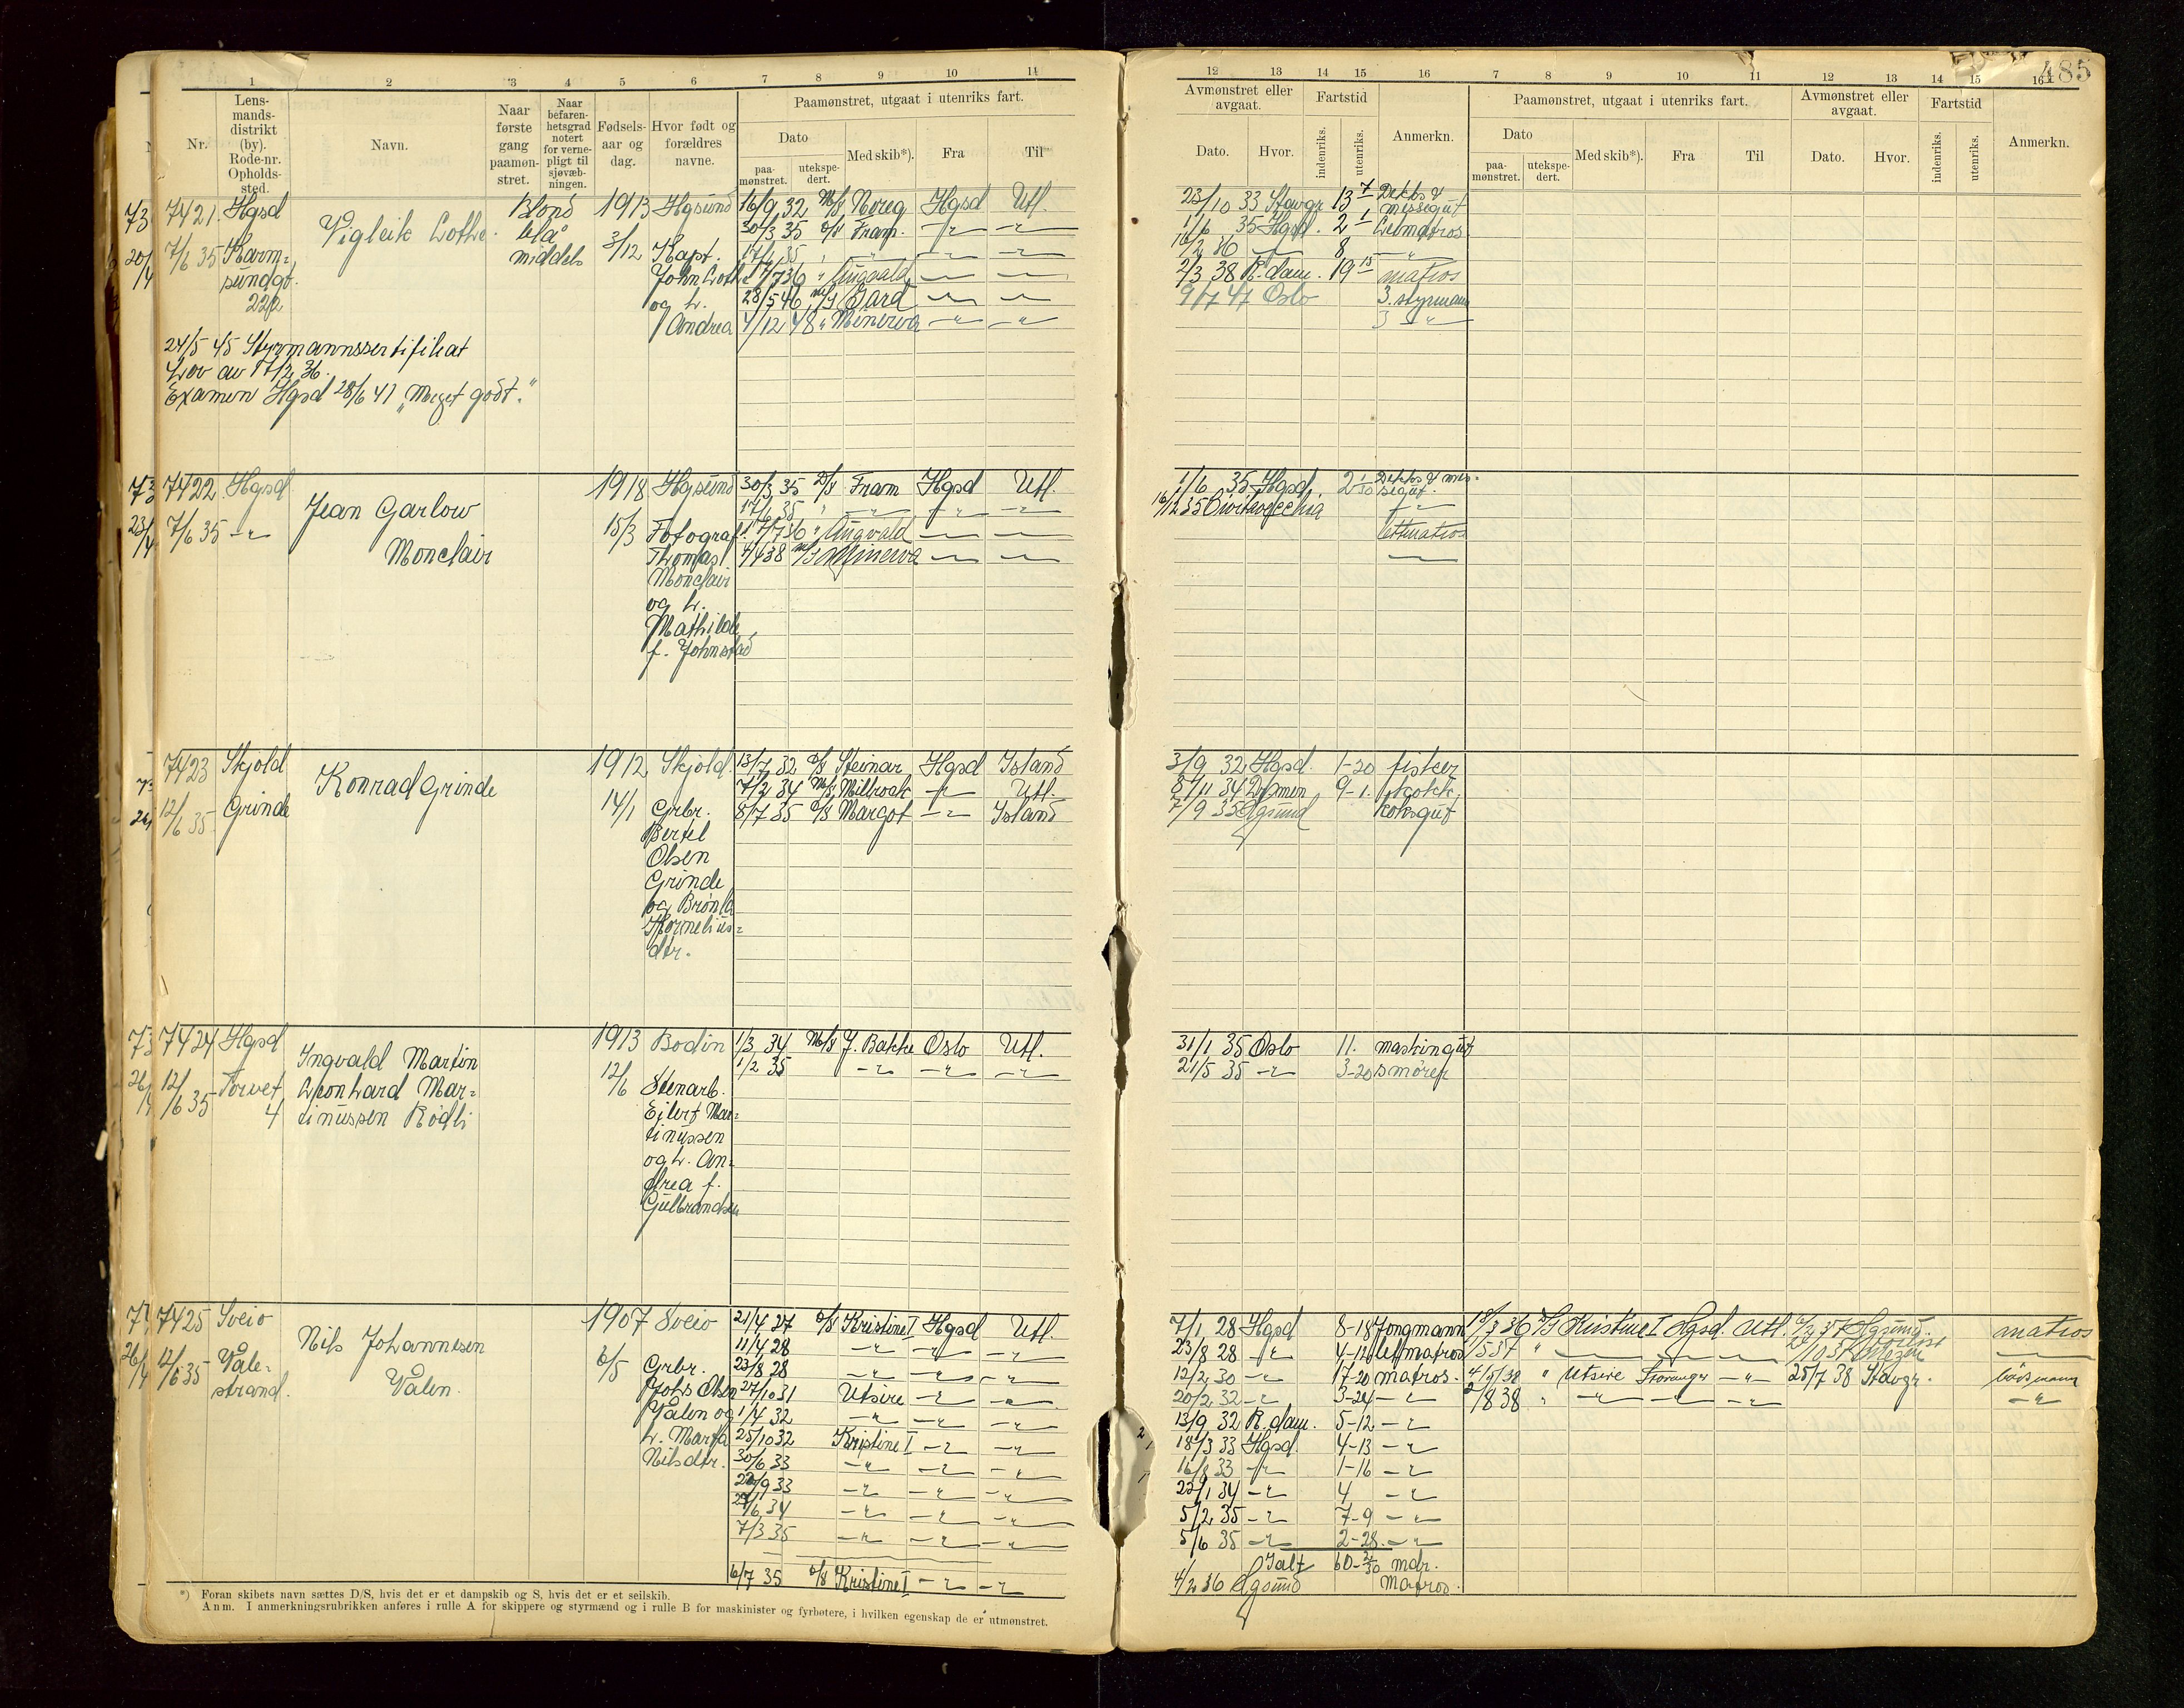 485
1 2 3 4 5 6 7 8 9 10 11
12 13 14 15 16 7 8 9 10 11 12 13 14 15 16
Nr.
Lens-
mands-
distrikt
(by).
Rode-nr.
Opholds-
sted.
Navn.
Naar
første
gang
paamøn-
stret.
Naar
befaren-
hetsgrad
notert
for verne-
pligt til
sjøvæb-
ningen.
Fødsels-
aar og
dag.
Hvor født og
forældres
navne.
Paamønstret, utgaat i utenriks fart.
Dato
paa-
mønstret.
utekspe-
dert.
Med skib*).
Fra
Til
Avmønstret eller
avgaat.
Dato.
Hvor.
Fartstid
indenriks.
utenriks.
Anmerkn.
Paamønstret, utgaat i utenriks fart.
Dato
paa-
mønstret.
utekspe-
dert.
Med skib*).
Fra
Til
Avmønstret eller
avgaat.
Dato.
Hvor.
Fartstid
indenriks.
utenriks.
Anmerkn.
7421
7/6 35
Hgsd
Karm-
sundgt.
222
Vigleik Lothe.
Blond
blå
middels
1913
3/12
Hgsund
Kapt.
John Lothe
og h.
Andrea
16/9 32 M/S Noreg Hgsd Utl.
30/3 35 D/S Fram. -"- -"-
17/6 35 " -"- -"-
17/7 36 " Augvald -"- -"-
28/5 46 M/S Gard -"- -"-
4/12 48 " Minerva -"- -"-
23/10 33 Stavgr 13 7 Dekks &
messegut
1/6 35 Hgsd. 2 1 Lettmatros
16/2 36 -"- 8 "
2/3 38 R.dam. 19 15 matros
9/7 47 Oslo 3. styrmann
3 -"-
24/5 45 Styrmannssertifikat
Lov av 17/2 36.
Examen Hgsd 28/6 41 „Meget godt."
7422
7/6 35
Hgsd
-"-
Jean Garlow
Monclair
1918
15/3
Hgsund
Fotograf
Thomas
Monclair
og h.
Mathilde
f. Johnstad
30/3 35 D/S Fram Hgsd Utl.
17/6 35 " -"- -"- -"-
17/7 36 " Augvald -"- -"-
4/4 38 M/S Minerva -"- -"-
1/6 35 Hgsd. 2 1/30 Dekks & mes-
segut.
16/12 35 Civitavecchia -"-
lettmatros
-"-
7423
12/6 35
Skjold
Grinde
Konrad Grinde
1912
14/1
Skjold.
Grbr.
Bertel
Olsen
Grinde
og Brønla
Kornelius-
dtr.
13/7 32 D/S Steinar Hgsd Island
7/2 34 M/S Milbroak -"- Utl.
8/7 35 D/S Margot -"- Island
3/9 32 Hgsd. 1-20 fisker
8/11 34 Drmmen 9-1. kokk.
7/9 35 Hgsund koksgut
7424
12/6 35
Hgsd
Torvet
4
Ingvald Martin
Leonhard Mar-
tinussen Rødli
1913
12/6
Bodin
Stenarb.
Eilert Mar-
tinussen
og h. An-
drea f.
Gulbrandsen
1/3 34 M/S J. Bakke Oslo Utl.
1/2 35 -"- -"- -"-
31/1 35 Oslo 11. maskingut
21/5 35 -"- 3-20 smører
7425
12/6 35
Sveio
Vale-
strand.
Nils Johannesen
Valen.
1907
6/5
Sveio
Grbr.
Johs Olsen
Valen og
h. Marta
Nilsdtr.
21/4 27 D/S Kristine I Hgsd Utl.
11/4 28 -"- -"- -"-
23/8 28 -"- -"- -"-
27/10 31 Utsire -"- -"-
1/4 32 -"- -"- -"-
25/10 32 Kristine I -"- -"-
30/6 33 -"- -"- -"-
22/9 33 -"- -"- -"-
27/6 34 -"- -"- -"-
7/3 35 -"- -"- -"-
6/7 35 D/S Kristine I -"- -"-
7/1 28 Hgsd 8-18 Jongmann
23/8 28 -"- 4-12 lettmatros
12/2 30 -"- 17-20 matros.
20/2 32 -"- 3-24 -"-
13/9 32 R.dam. 5-12 -"-
18/3 33 Hgsd. 4-13 -"-
16/8 33 -"- 1-16 -"-
22/1 34 -"- 4 -"-
5/2 35 -"- 7-9 -"-
5/6 35 -"- 2-28 -"-
Ialt 60- 2/30 mdr.
4/2 36 Hgsund Matros.
18/3 36 D/S Kristine I Hgsd. Utl. 37 Hgsund. matros
" -"- -"- -"- -"-
38 " Utsire -"- 25/7 38 Stavgr. båtsmann
2/8 38 " -"- -"- -"- -"-
*) Foran skibets navn sættes D/S, hvis det er et dampskib og S, hvis det er et seilskib.
Anm. I anmerkningsrubrikken anføres i rulle A for skippere og styrmænd og i rulle B for maskinister og fyrbøtere, i hvilken egenskap de er utmønstret.